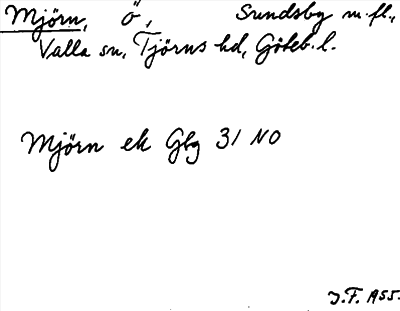 Mjörn, ö, Sundsby m.fl.,
Valla sn, Tjörns hd, Göteb. l.
Mjörn ek Gbg 31 NO
J.F. 1955.